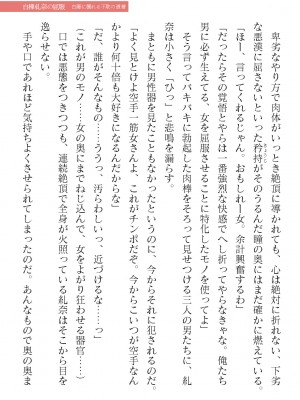 卑劣なやり方で肉体がいっとき絶頂に導かれても、心は絶対に折れない、下劣
な悪漢に屈さないといった矜持がそのうるんだ瞳の奥にはまだ確かに燃えている。
「ほー、言ってくれるじゃん。おもしれーな。余計興奮するわ」
「だったらその覚悟とやらは一番強烈な快感でへし折ってやらなきゃな。俺たち
男に必ず生えてる、女を屈服させることに特化したモノを使ってよ」
そう言ってバキバキに勃起した肉棒をそろって見せつける三人の男たちに、糺
奈は小さく「ひっ」と悲鳴を漏らす。
まともに男性器を見たこともなかったというのに、今からそれに犯されるのだ。
「よく見とけよ空手一筋女さんよ、これがチンポだぞ。今からこいつが空手なん
かより何十倍も大好きになるんだからな」
「だ、誰がそんなもの……ううっ、汚らわしいっ、近づけるな……っ」
(これが男のモノ……女の奥にまでねじ込んで、女をよがり狂わせる器官……)
口では悪態をつきつつも、連続絶頂で全身が火照っている糺奈はそこから目を
逸らせない。
手や口であれほど気持ちよくさせられてしまったのだ。あんなもので奥の奥ま